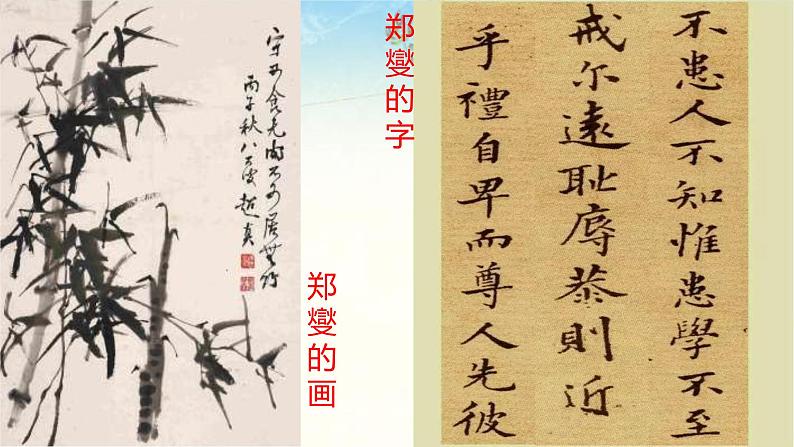 宁可食无肉不可居無竹
丙午秋八
郑燮的画
郑燮的字
不患人不知惟患學不至
戒尔遠耻辱恭則近
乎禮自卑而尊人先彼